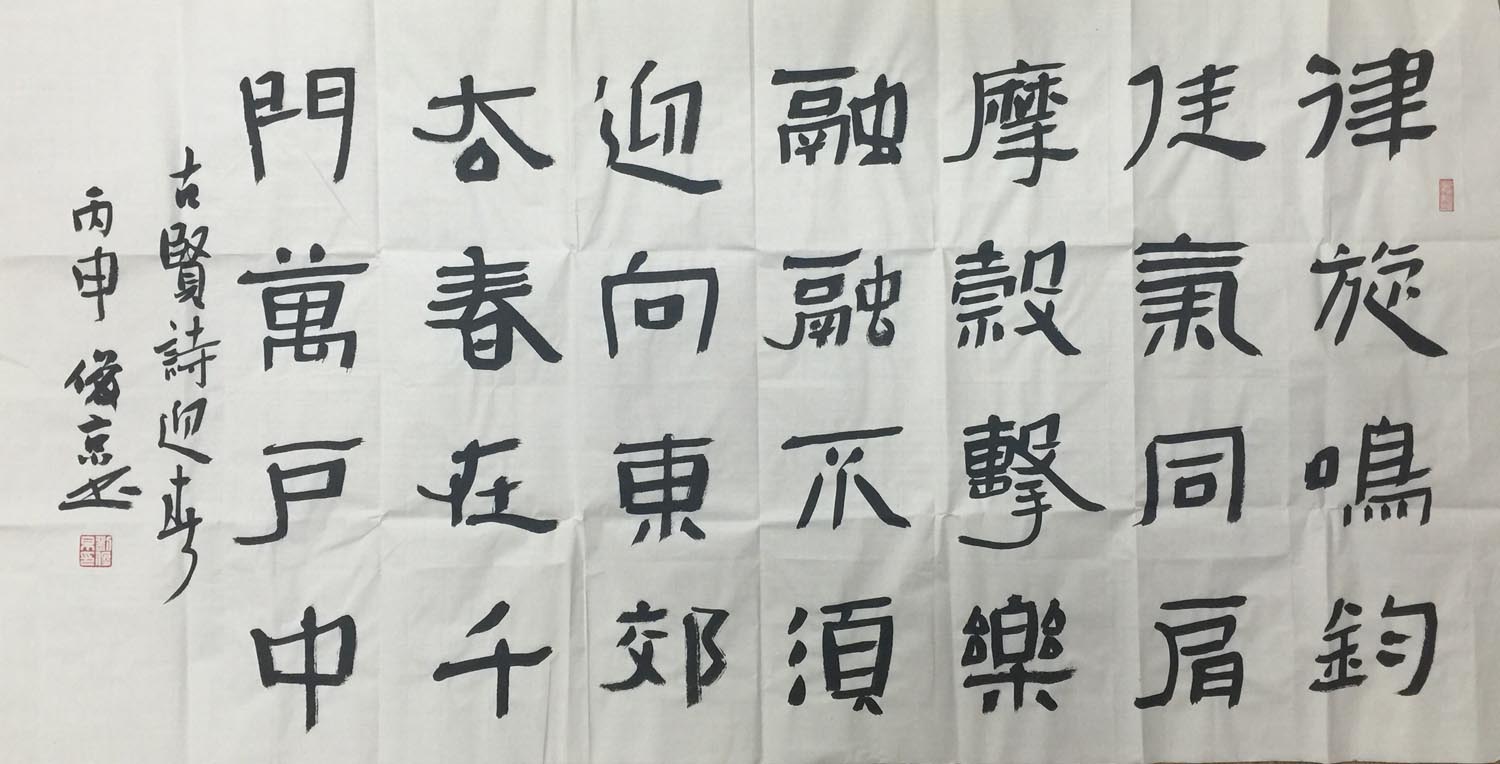 律旋鳴鈞
佳氣同肩
摩轂擊樂
融融不須
迎向東郊
去春在千
門萬戶中
古賢詩迎春
丙申 京书